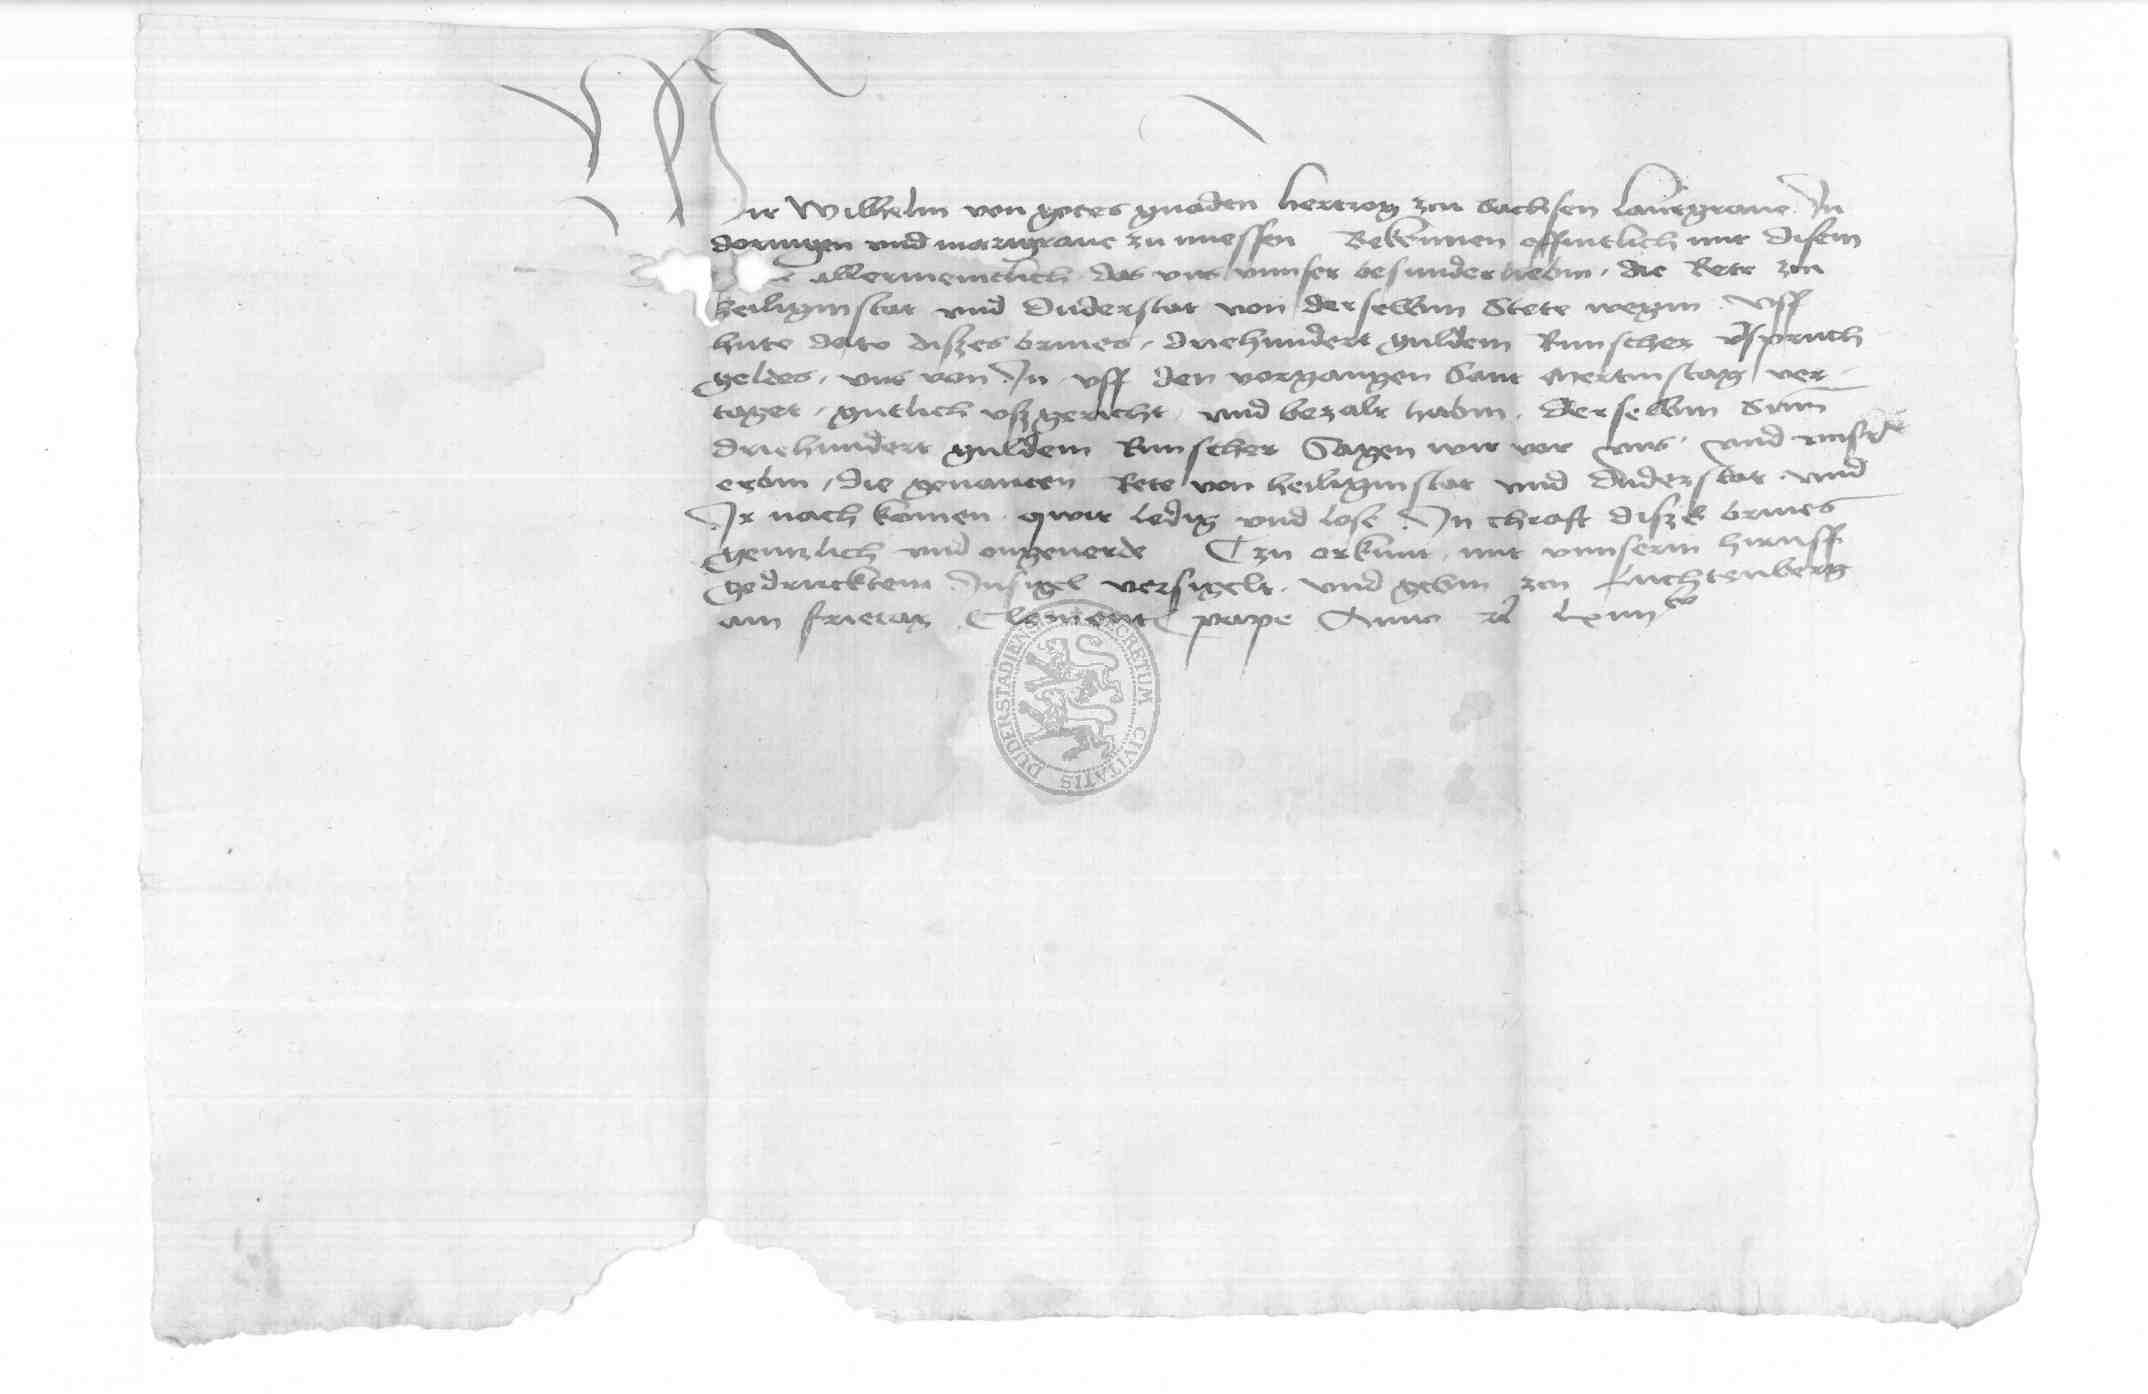 Wir Wilhelm von gotes gnaden hertzog zcu Sachsen lantgraue In
doringen und marcgraue zu miessen Bekennen offintlich mit disem
allermeniclich das uns unnser besunder liebin die Rete zcu
heiliginstat und Duderstat von derselbin Stete wegin uff
hute dato diszes brieues driehundert guldein Rinscher
geldes uns von In uff den vorgangen Sant Mertinstag ver-
taget gutlich uszgericht und bezalt habin derselbin Sum
driehundert guldein Rinscher Sagen wir vor uns und unser
erbin die genanten Rete von heiliginstat und Duderstat und
Ir nach komen qwit ledig und lose In chraft diszes brieues
gentzlich und ongeuerde Czu orkunt mit unnserm hiruff
gedrucktem Insigel versigelt und gebin zcu Luchtenberg
am frietag Clementis pape Anno
SECRETUM CIVITATIS DUDERSTADIENSIS